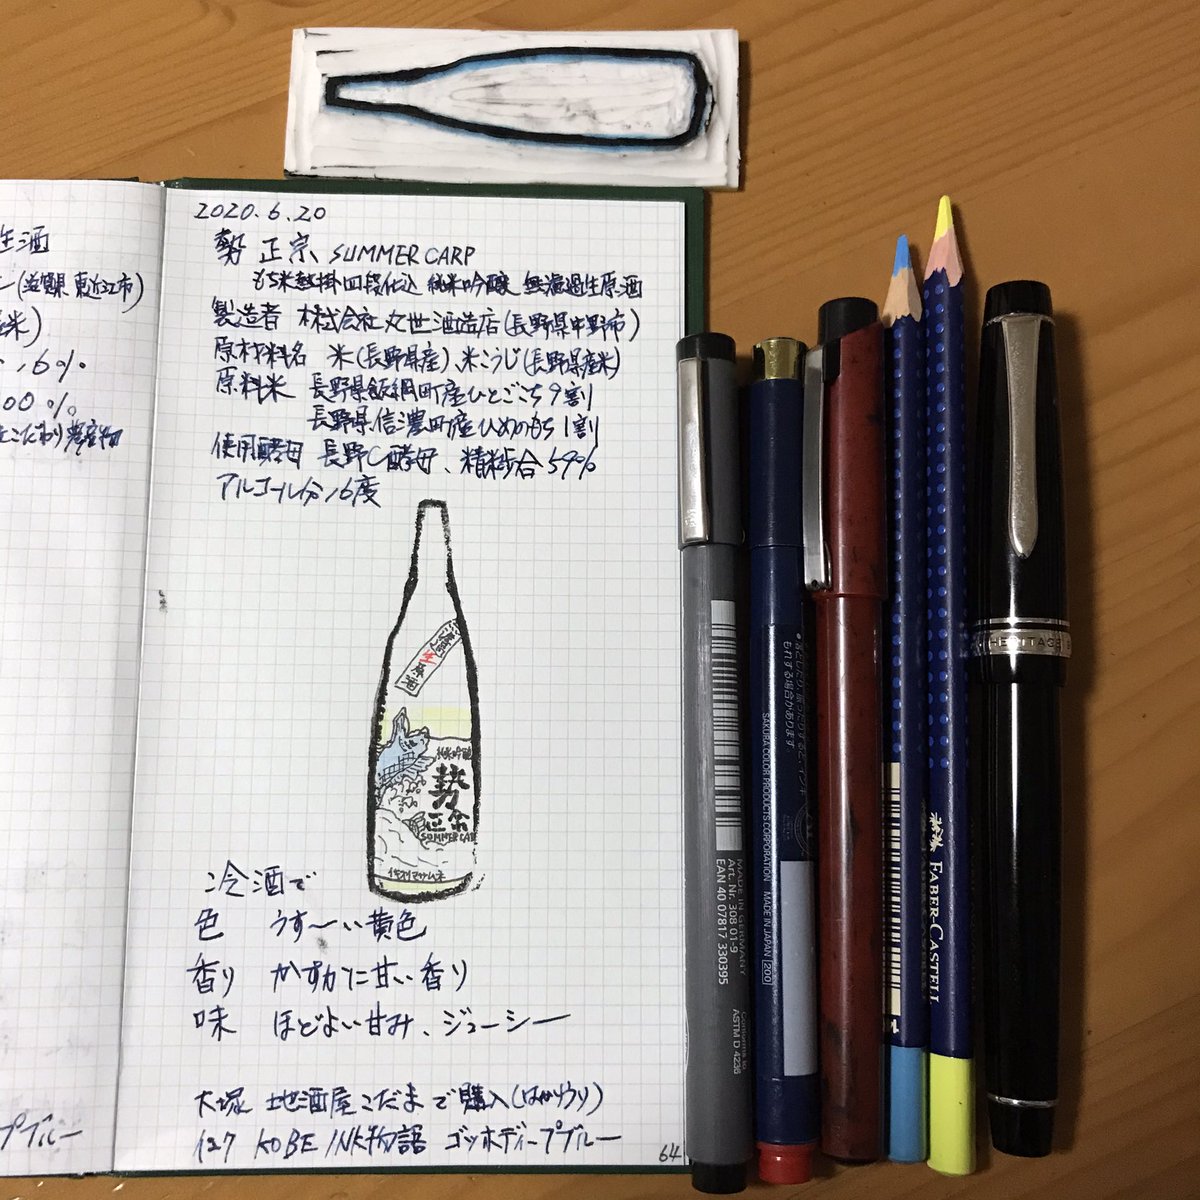 生酒
(滋賀県東近江市)
米)
16%
00%
こだわり農産物
プブルー
2020.6.20
勢正宗 SUMMER CARP
もち米熱掛四段仕込 純米吟醸 無濾過生原酒
製造者 株式会社丸世酒造店(長野県中野市)
原材料名 米(長野県産)、米こうじ(長野県産米)
原料米 長野県飯綱町産ひとごこち9割
長野県信濃町産ひめのもち1割
使用酵母 長野C酵母、精米歩合59%
アルコール分16度
無濾過生原酒
純米吟醸
勢
正宗
SUMMER CARP
冷酒で
色 うす〜い黄色
香り かすかに甘い香り
味 ほどよい甘み、ジューシー
大塚 地酒屋こだまで購入(はかりうり)
127 KOBE INK物語 ゴッホディープブルー
64
MADE IN GERMANY
Art. Nr. 308 01-9
EAN 40 07817 330395
Conforms to
ASTM D 4236
●落としたり、振ったりすると、インキ
もれする場合があります。
SAKURA COLOR PRODUCTS CORPORATION MADE IN JAPAN [200]
FABER-CASTELL
HERITAGE